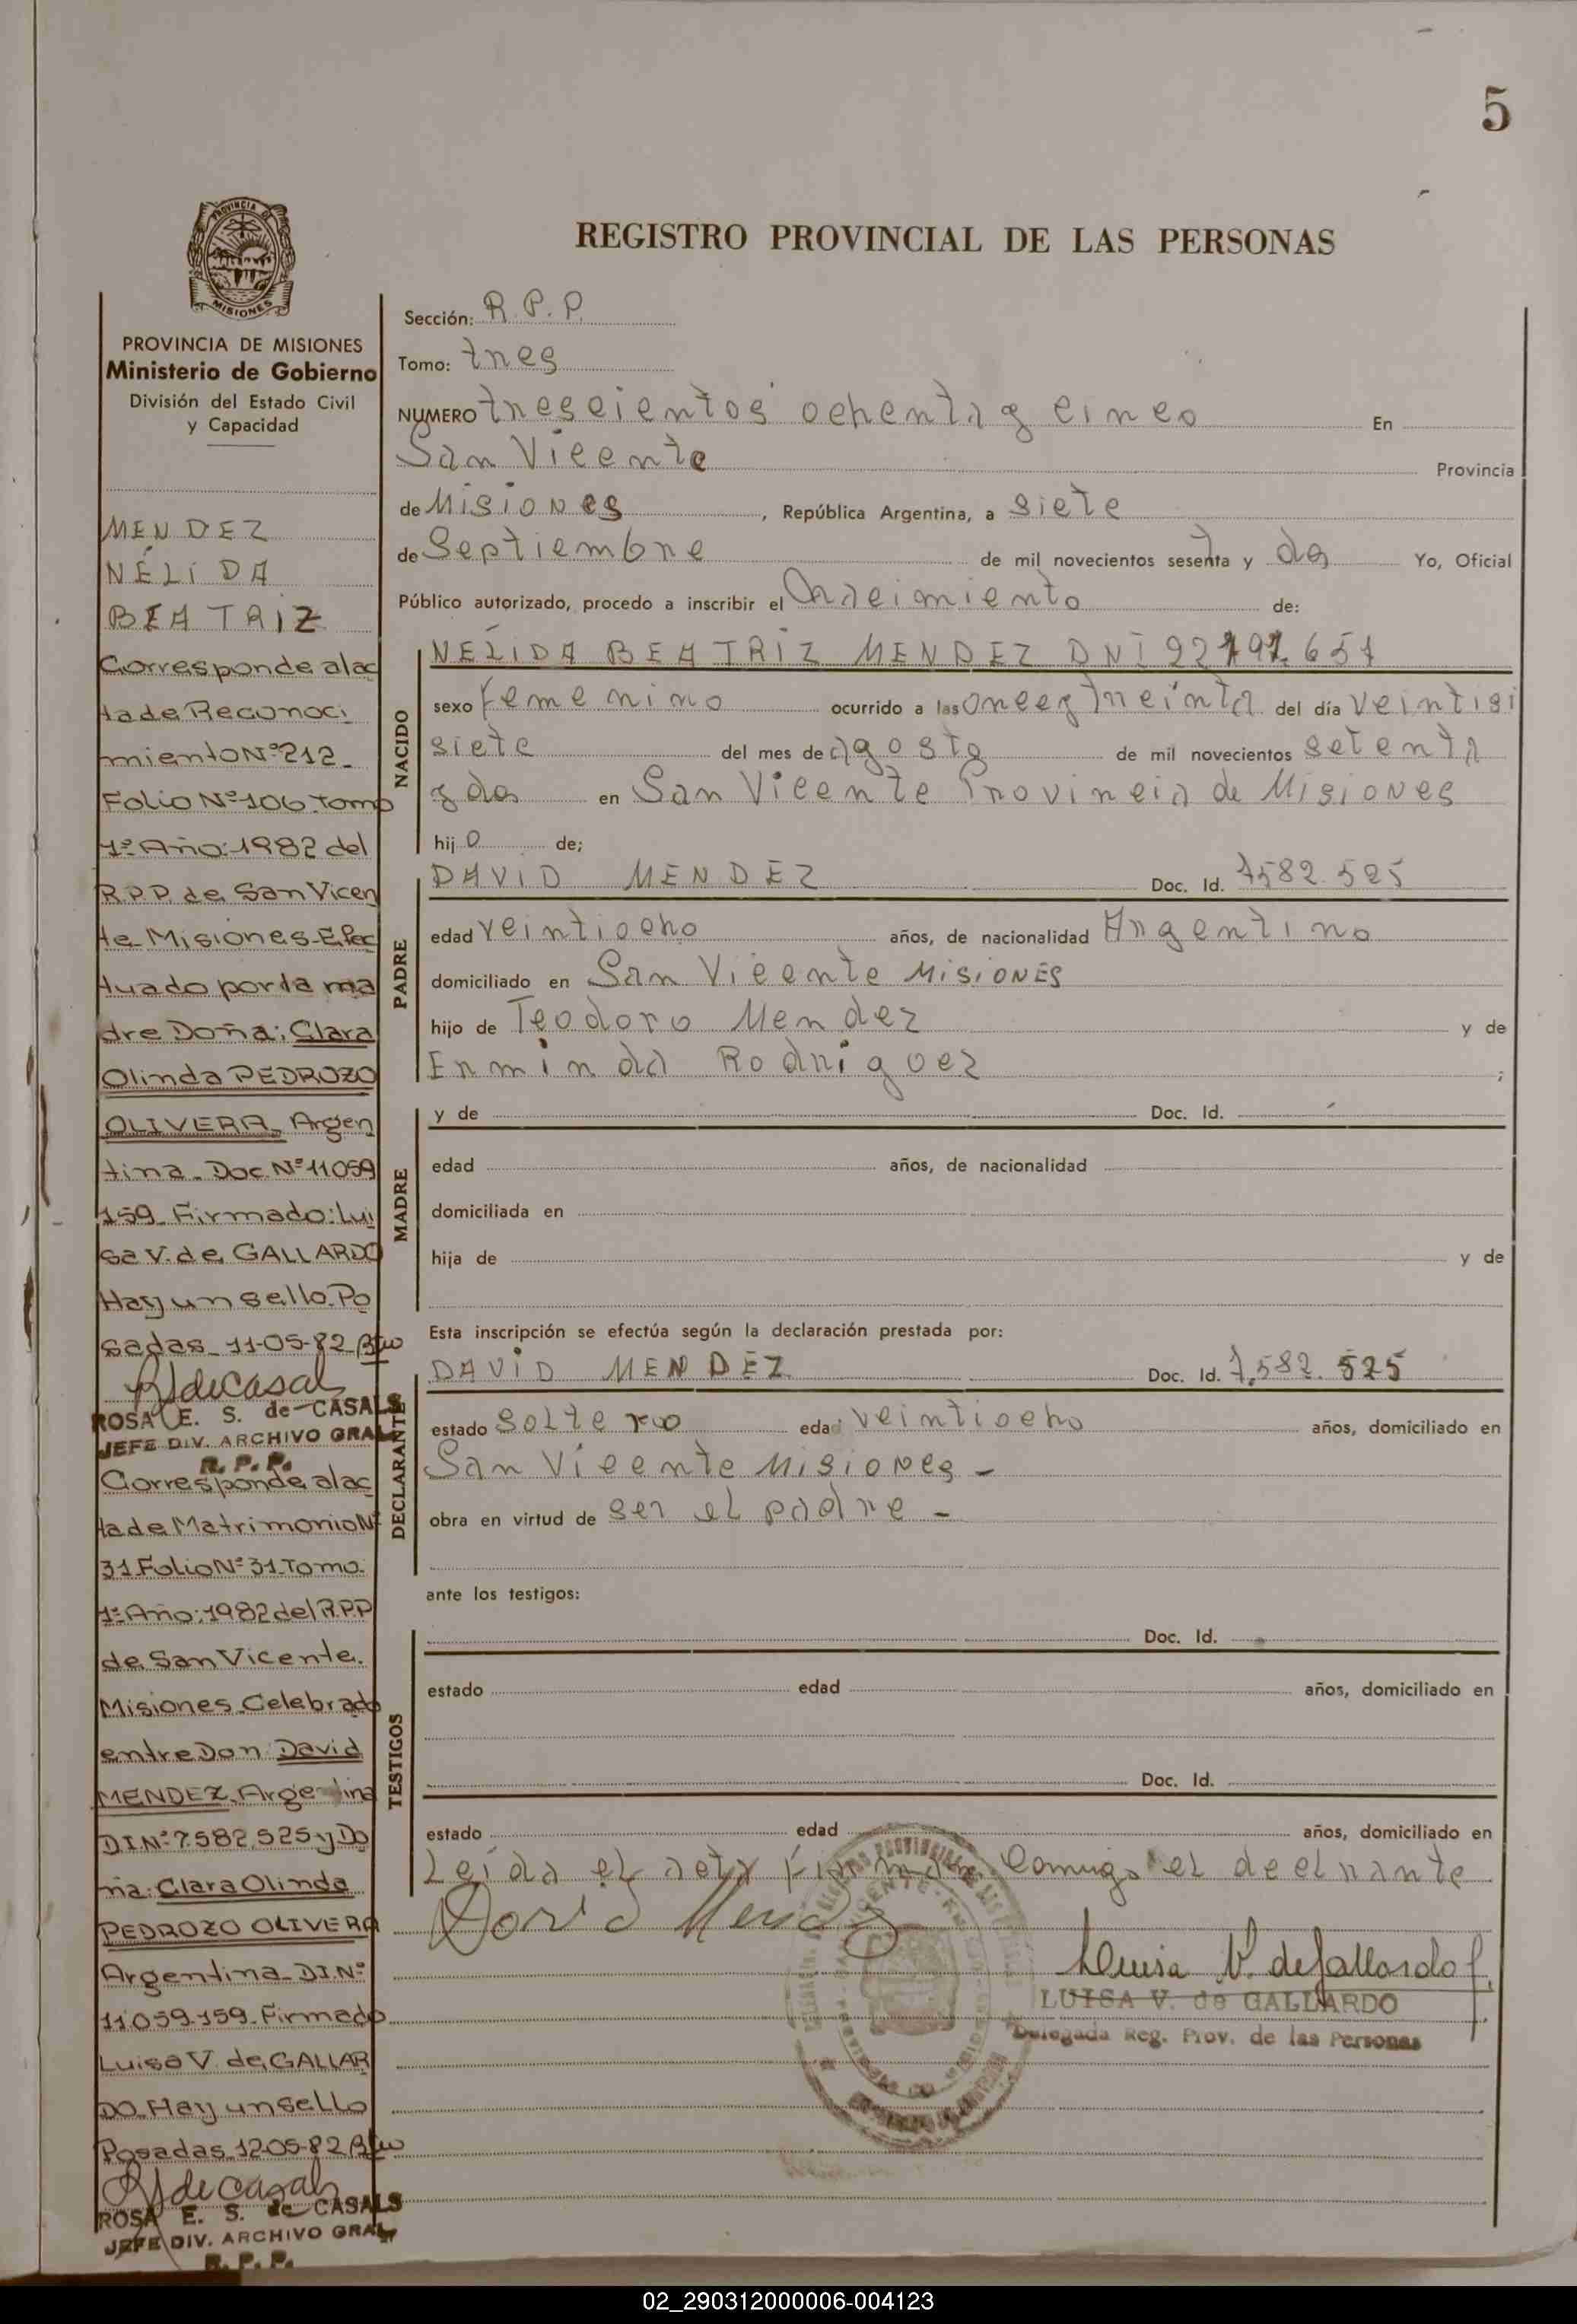 5
REGISTRO PROVINCIAL DE LAS PERSONAS
MISIONES
PROVINCIA DE MISIONES
Ministerio de Gobierno
División del Estado Civil
y Capacidad
MENDEZ
NÉLIDA
BEATRIZ
Corresponde alac
ta de Reconoci
miento Nº 212_
Folio Nº 106 tomo
1º Año: 1982 del
R.P.P. de San Vicen
te_Misiones_Efec
tuado por la ma
dre Doña: Clara
Olinda PEDROZO
OLIVERA_ Argen
tina_ Doc. Nº 11.059
159_Firmado: Lui
sa V. de GALLARDO
Hay un sello. Po
sadas_11-05-82
ROSA E. S. de CASALS
JEFE DIV. ARCHIVO GRAL
R. P. P.
Corresponde alac
ta de Matrimonio Nº
31 Folio Nº 31 Tomo
1º Año: 1982 del R.P.P
de San Vicente.
Misiones_Celebrado
entre Don: David
MENDEZ, Argentina
D.I.Nº 7.582.525 y Do
ña: Clara Olinda
PEDROZO OLIVERA
Argentina_D.I.Nº
11.059.159_Firmado
Luisa V. de GALLAR
DO_Hay un sello
Posadas_12-05-82
ROSA E. S. de CASALS
JEFE DIV. ARCHIVO GRAL
R. P. P.
Sección: R.P.P.
Tomo: tres
NUMERO trescientos ochenta y cinco En
San Vicente Provincia
de Misiones, República Argentina, a siete
de Septiembre de mil novecientos sesenta y dos Yo, Oficial
Público autorizado, procedo a inscribir el Nacimiento de:
NACIDO
NÉLIDA BEATRIZ MENDEZ DNI
sexo femenino ocurrido a las once y treinta del día veintisi
siete del mes de agosto de mil novecientos setenta
y dos en San Vicente Provincia de Misiones
hijo de;
PADRE
DAVID MENDEZ Doc. Id. 7582.525
edad veintiocho años, de nacionalidad Argentino
domiciliado en San Vicente MISIONES
hijo de Teodoro Mendez y de
Erminda Rodriguez ;
MADRE
y de Doc. Id.
edad años, de nacionalidad
domiciliada en
hija de y de
Esta inscripción se efectúa según la declaración prestada por:
DECLARANTE
DAVID MENDEZ Doc. Id. 7.582.525
estado soltero edad veintiocho años, domiciliado en
San Vicente Misiones -
obra en virtud de ser el padre -
ante los testigos:
TESTIGOS
Doc. Id.
estado edad años, domiciliado en
Doc. Id.
estado edad años, domiciliado en
Leída el acta firman conmigo el declrante
David Mendez
Luisa V. de Gallardo
LUISA V. de GALLARDO
Delegada Reg. Prov. de las Personas
02_290312000006-004123